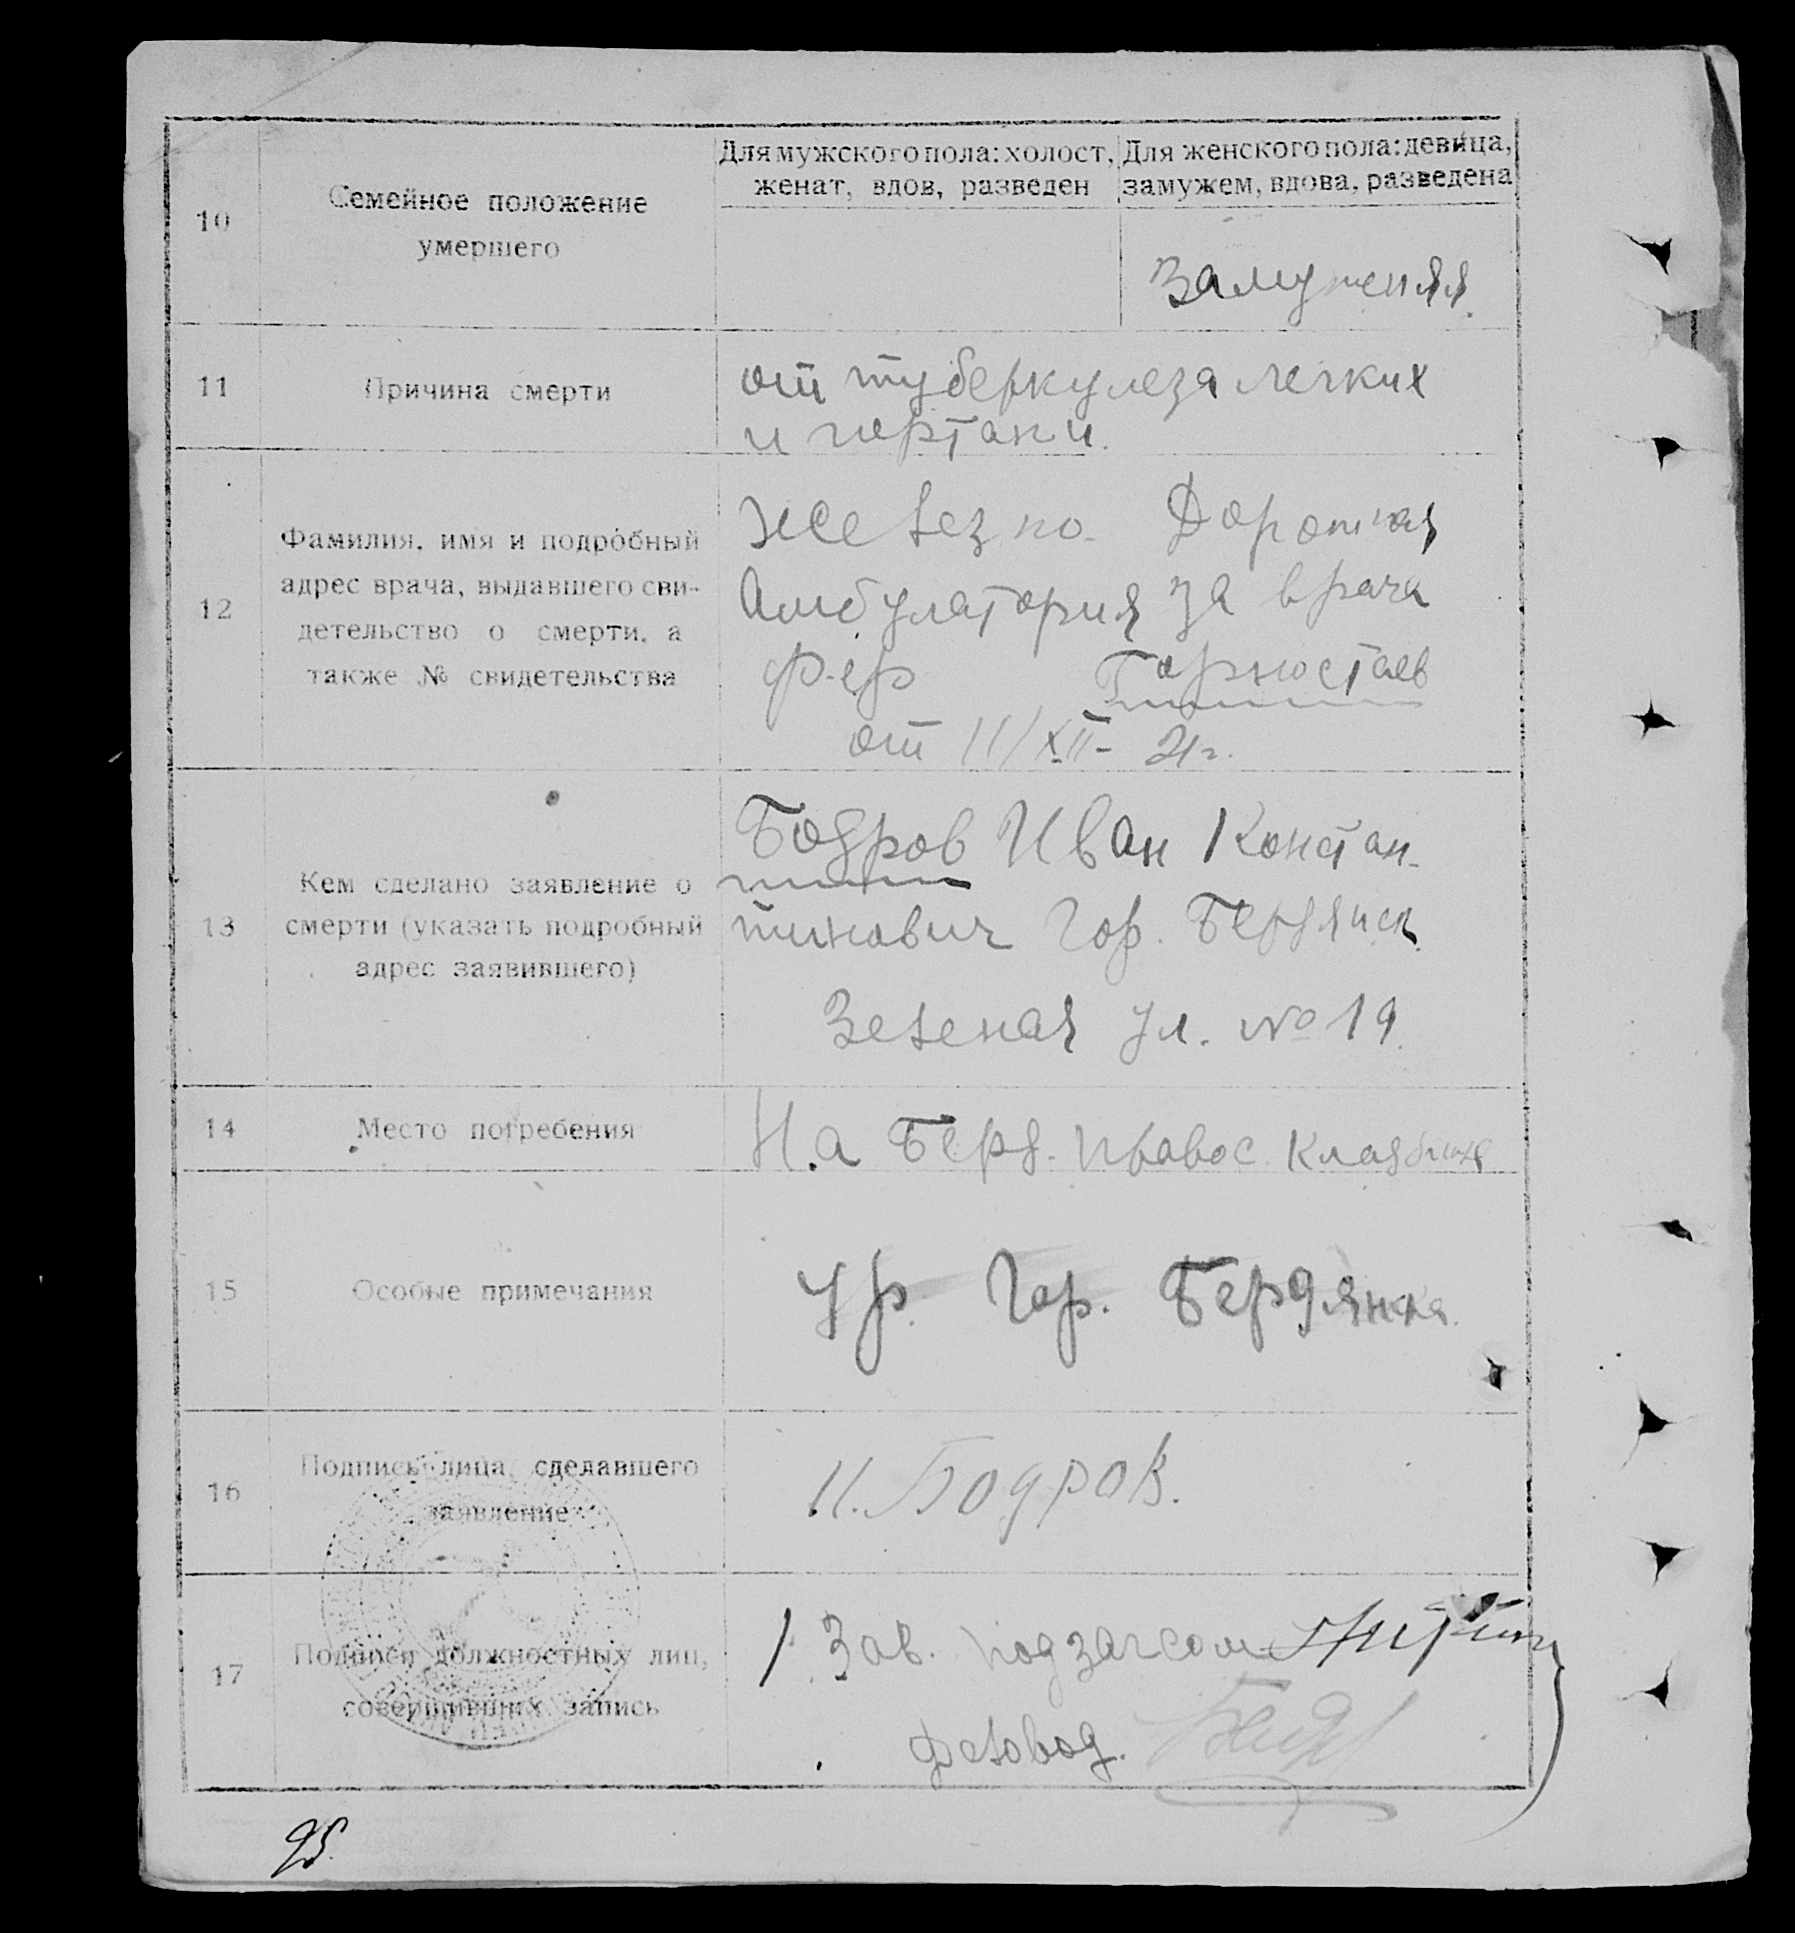 Для мужского пола: холост, женат, вдов, разведен
Для женского пола: девица, замужем, вдова, разведена
10
Семейное положение
умершего
Замужняя.
11
Причина смерти
от туберкулеза легких
и гортани.
12
Фамилия, имя и подробный
адрес врача, выдавшего сви-
детельство о смерти, а
также № свидетельства
Железно-Дорожная
Амбулатория за врача
Горностаев
от 11/XII- 21г.
13
Кем сделано заявление о
смерти (указать подробный
адрес заявившего)
Бодров Иван Констан-
тинович Гор. Бердянск.
Зеленая ул. № 19.
14
Место погребения
На Берд. правос. Кладбище
15
Особые примечания
Ур. Гор. Бердянска.
16
Подпись лица, сделавшего
заявление
И. Бодров.
17
Подписи должностных лиц,
совершивших запись
Зав. подзагсом
Деловод.
95.